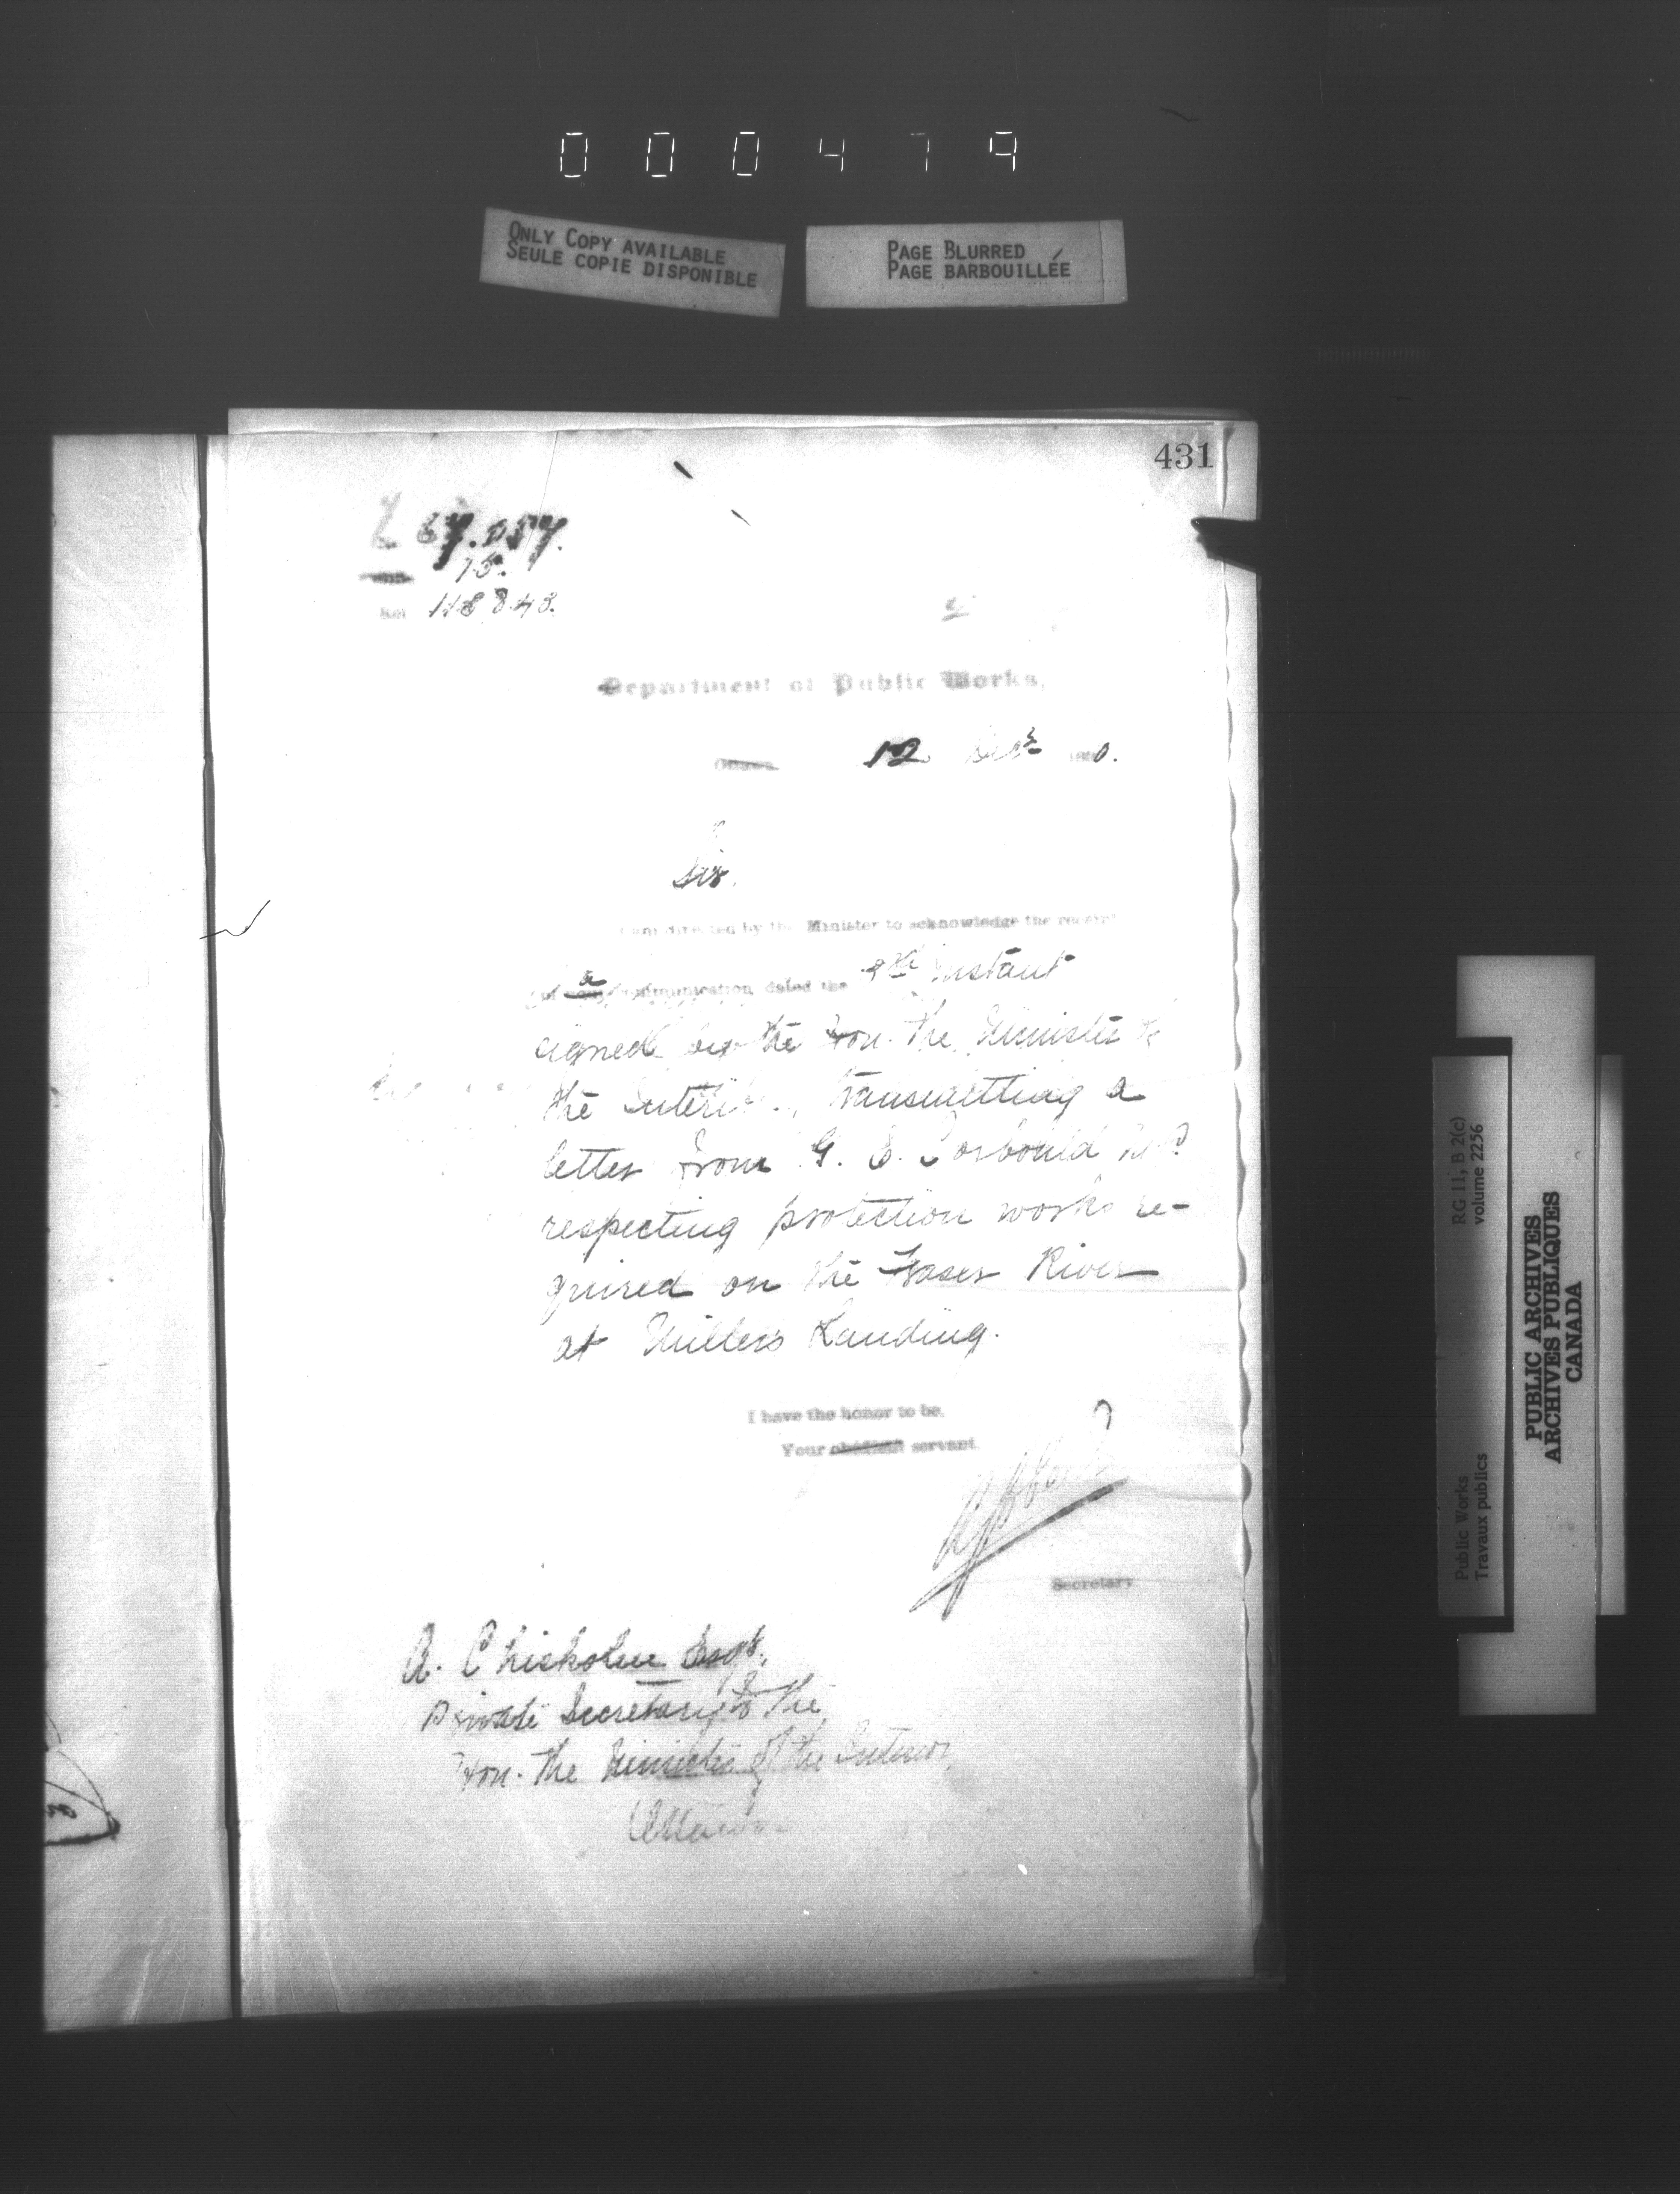 000479
ONLY COPY AVAILABLE
SEULE COPIE DISPONIBLE
PAGE BLURRED
PAGE BARBOUILLÉE
431
15.
118843.
Department of Public Works,
Ottawa 12 Decr 1890.
Sir.
I am directed by the Minister to acknowledge the receipt
of a communication, dated the instant
signed by the Hon. the Minister of
the Interior, transmitting a
letter from G. E. Corbould M.P.
respecting protection works re-
quired on the Fraser River
at Millers Landing.
I have the honor to be,
Your obedient servant.
Secretary
A. Chisholm Esqr.
Private Secretary to the
Hon. the Minister of the Interior,
Ottawa
RG 11, B 2(c)
volume 2256
Public Works
Travaux publics
PUBLIC ARCHIVES
ARCHIVES PUBLIQUES
CANADA